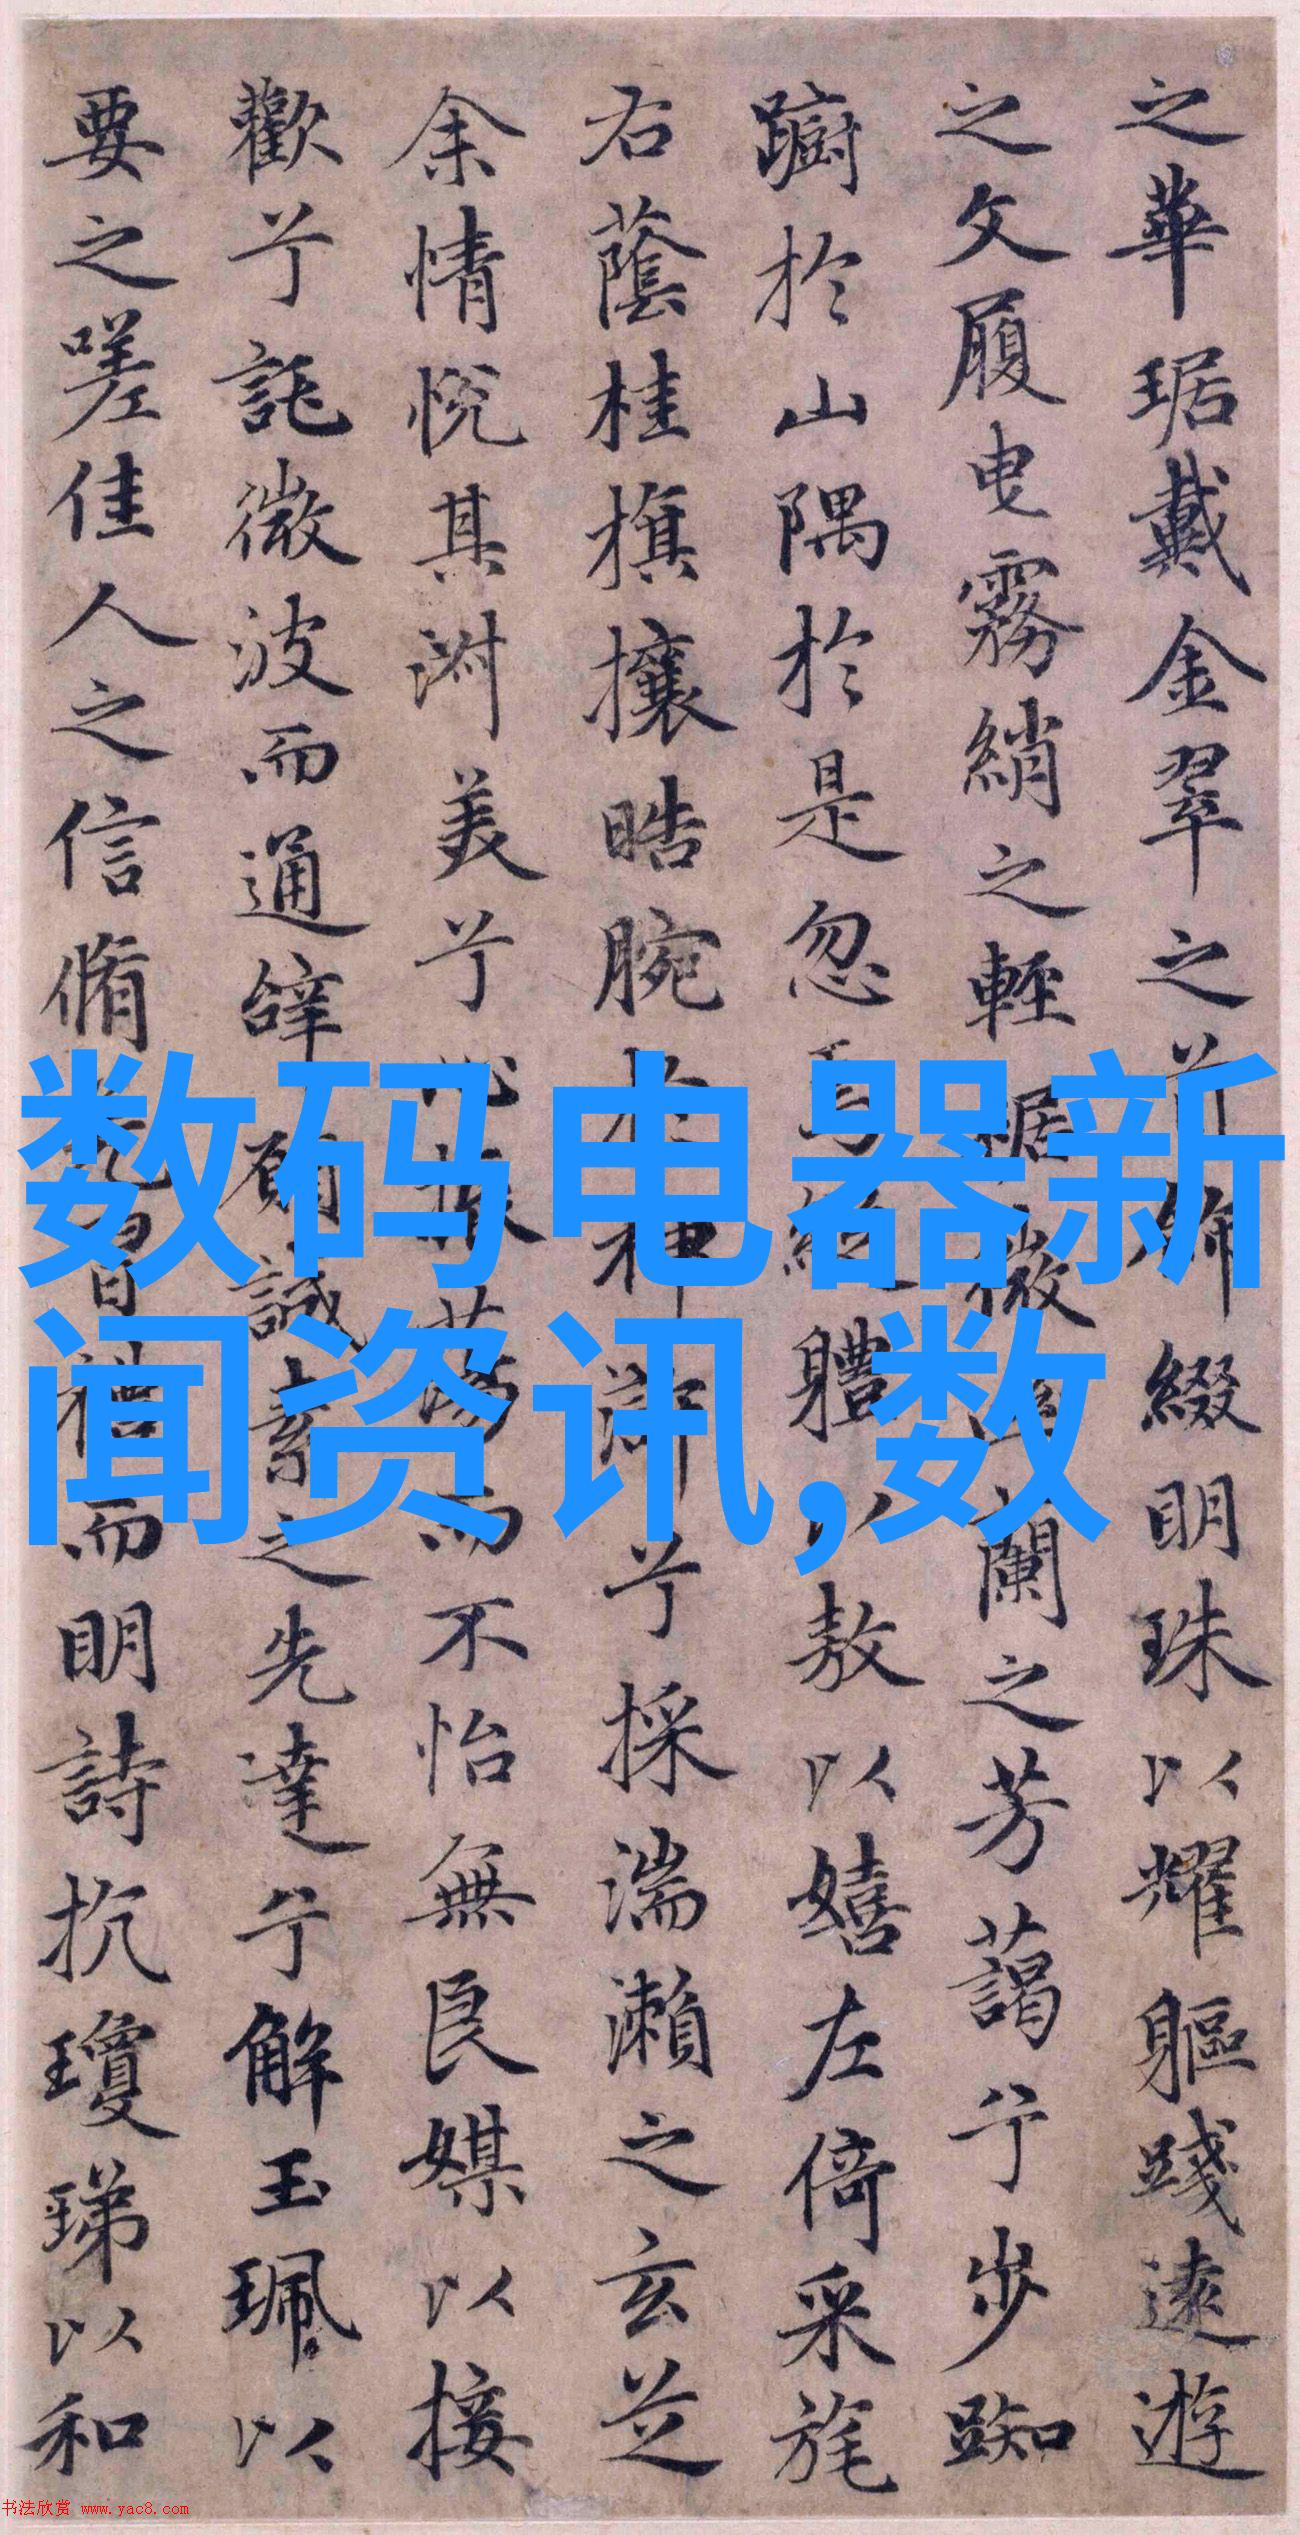 之華琚戴金翠之首飾綴明珠以耀軀踐遠遊
之文履曳霧綃之輕裾微幽蘭之芳藹兮步踟
蹰於山隅於是忽焉縱體以敖以嬉左倚采旄
右蔭桂旗攘皓腕於神滸兮採湍瀨之玄芝
余情悅其淑美兮心振蕩而不怡無良媒以接
歡兮託微波而通辭願誠素之先達兮解玉珮以
要之嗟佳人之信脩羌習禮而明詩抗瓊珶以和
数码电器新
闻资讯,数
书法欣赏 www.yac8.com